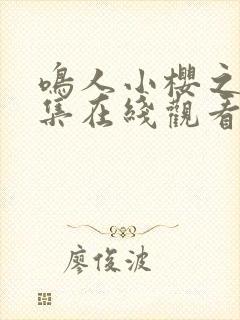 鳴人小櫻之
集在綫觀看
廖俊波